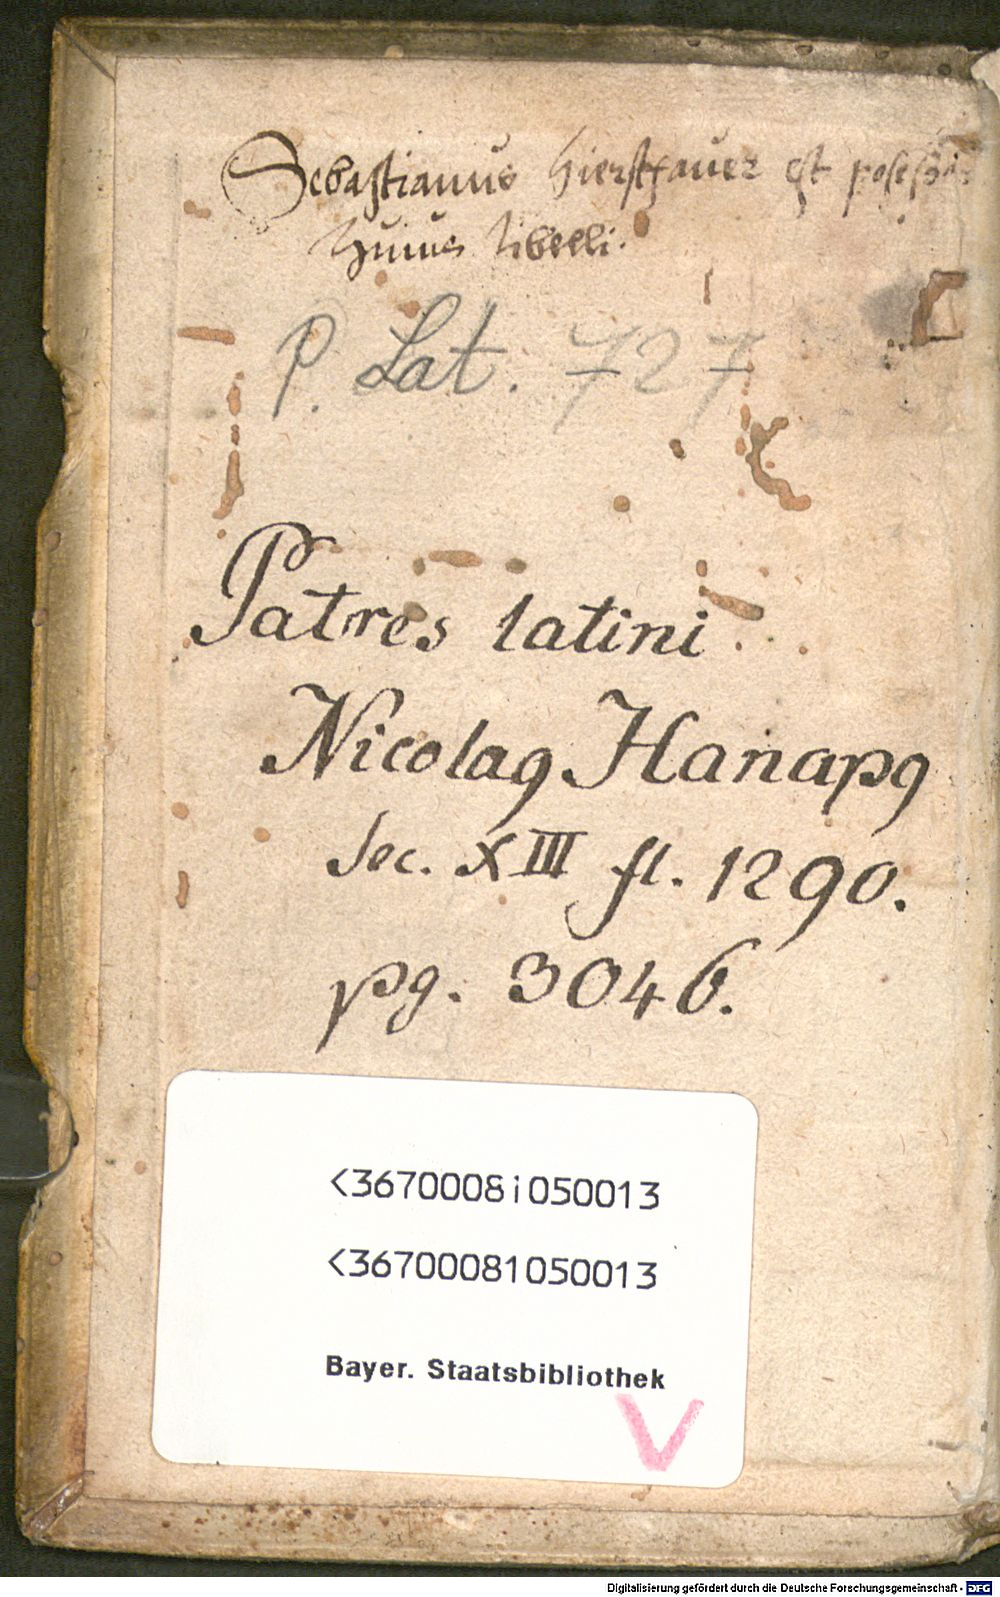 Sebastianus Hierstfauer est posessor
huius libelli.
P. Lat. 727
Patres latini
Nicolaꝯ Hanapꝯ
sec. XIII fl. 1290.
pg. 3046.
<36700081050013
<36700081050013
Bayer. Staatsbibliothek
V
Digitalisierung gefördert durch die Deutsche Forschungsgemeinschaft - DFG